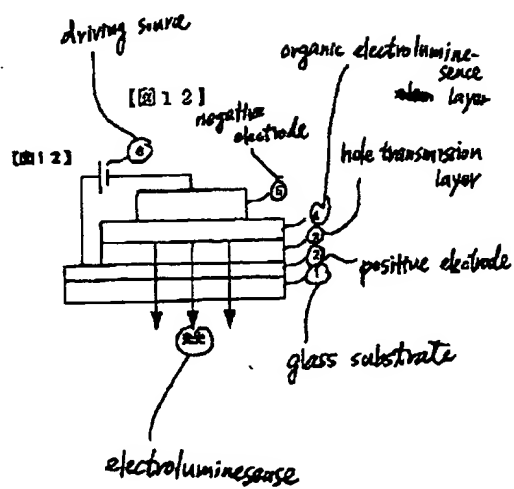 driving source
organic electrolumine-
sence
layer
【図12】
negative
electrode
【図12】
6
hole transmission
layer
5
4
3
2
positive electrode
1
glass substrate
発光
electroluminesense